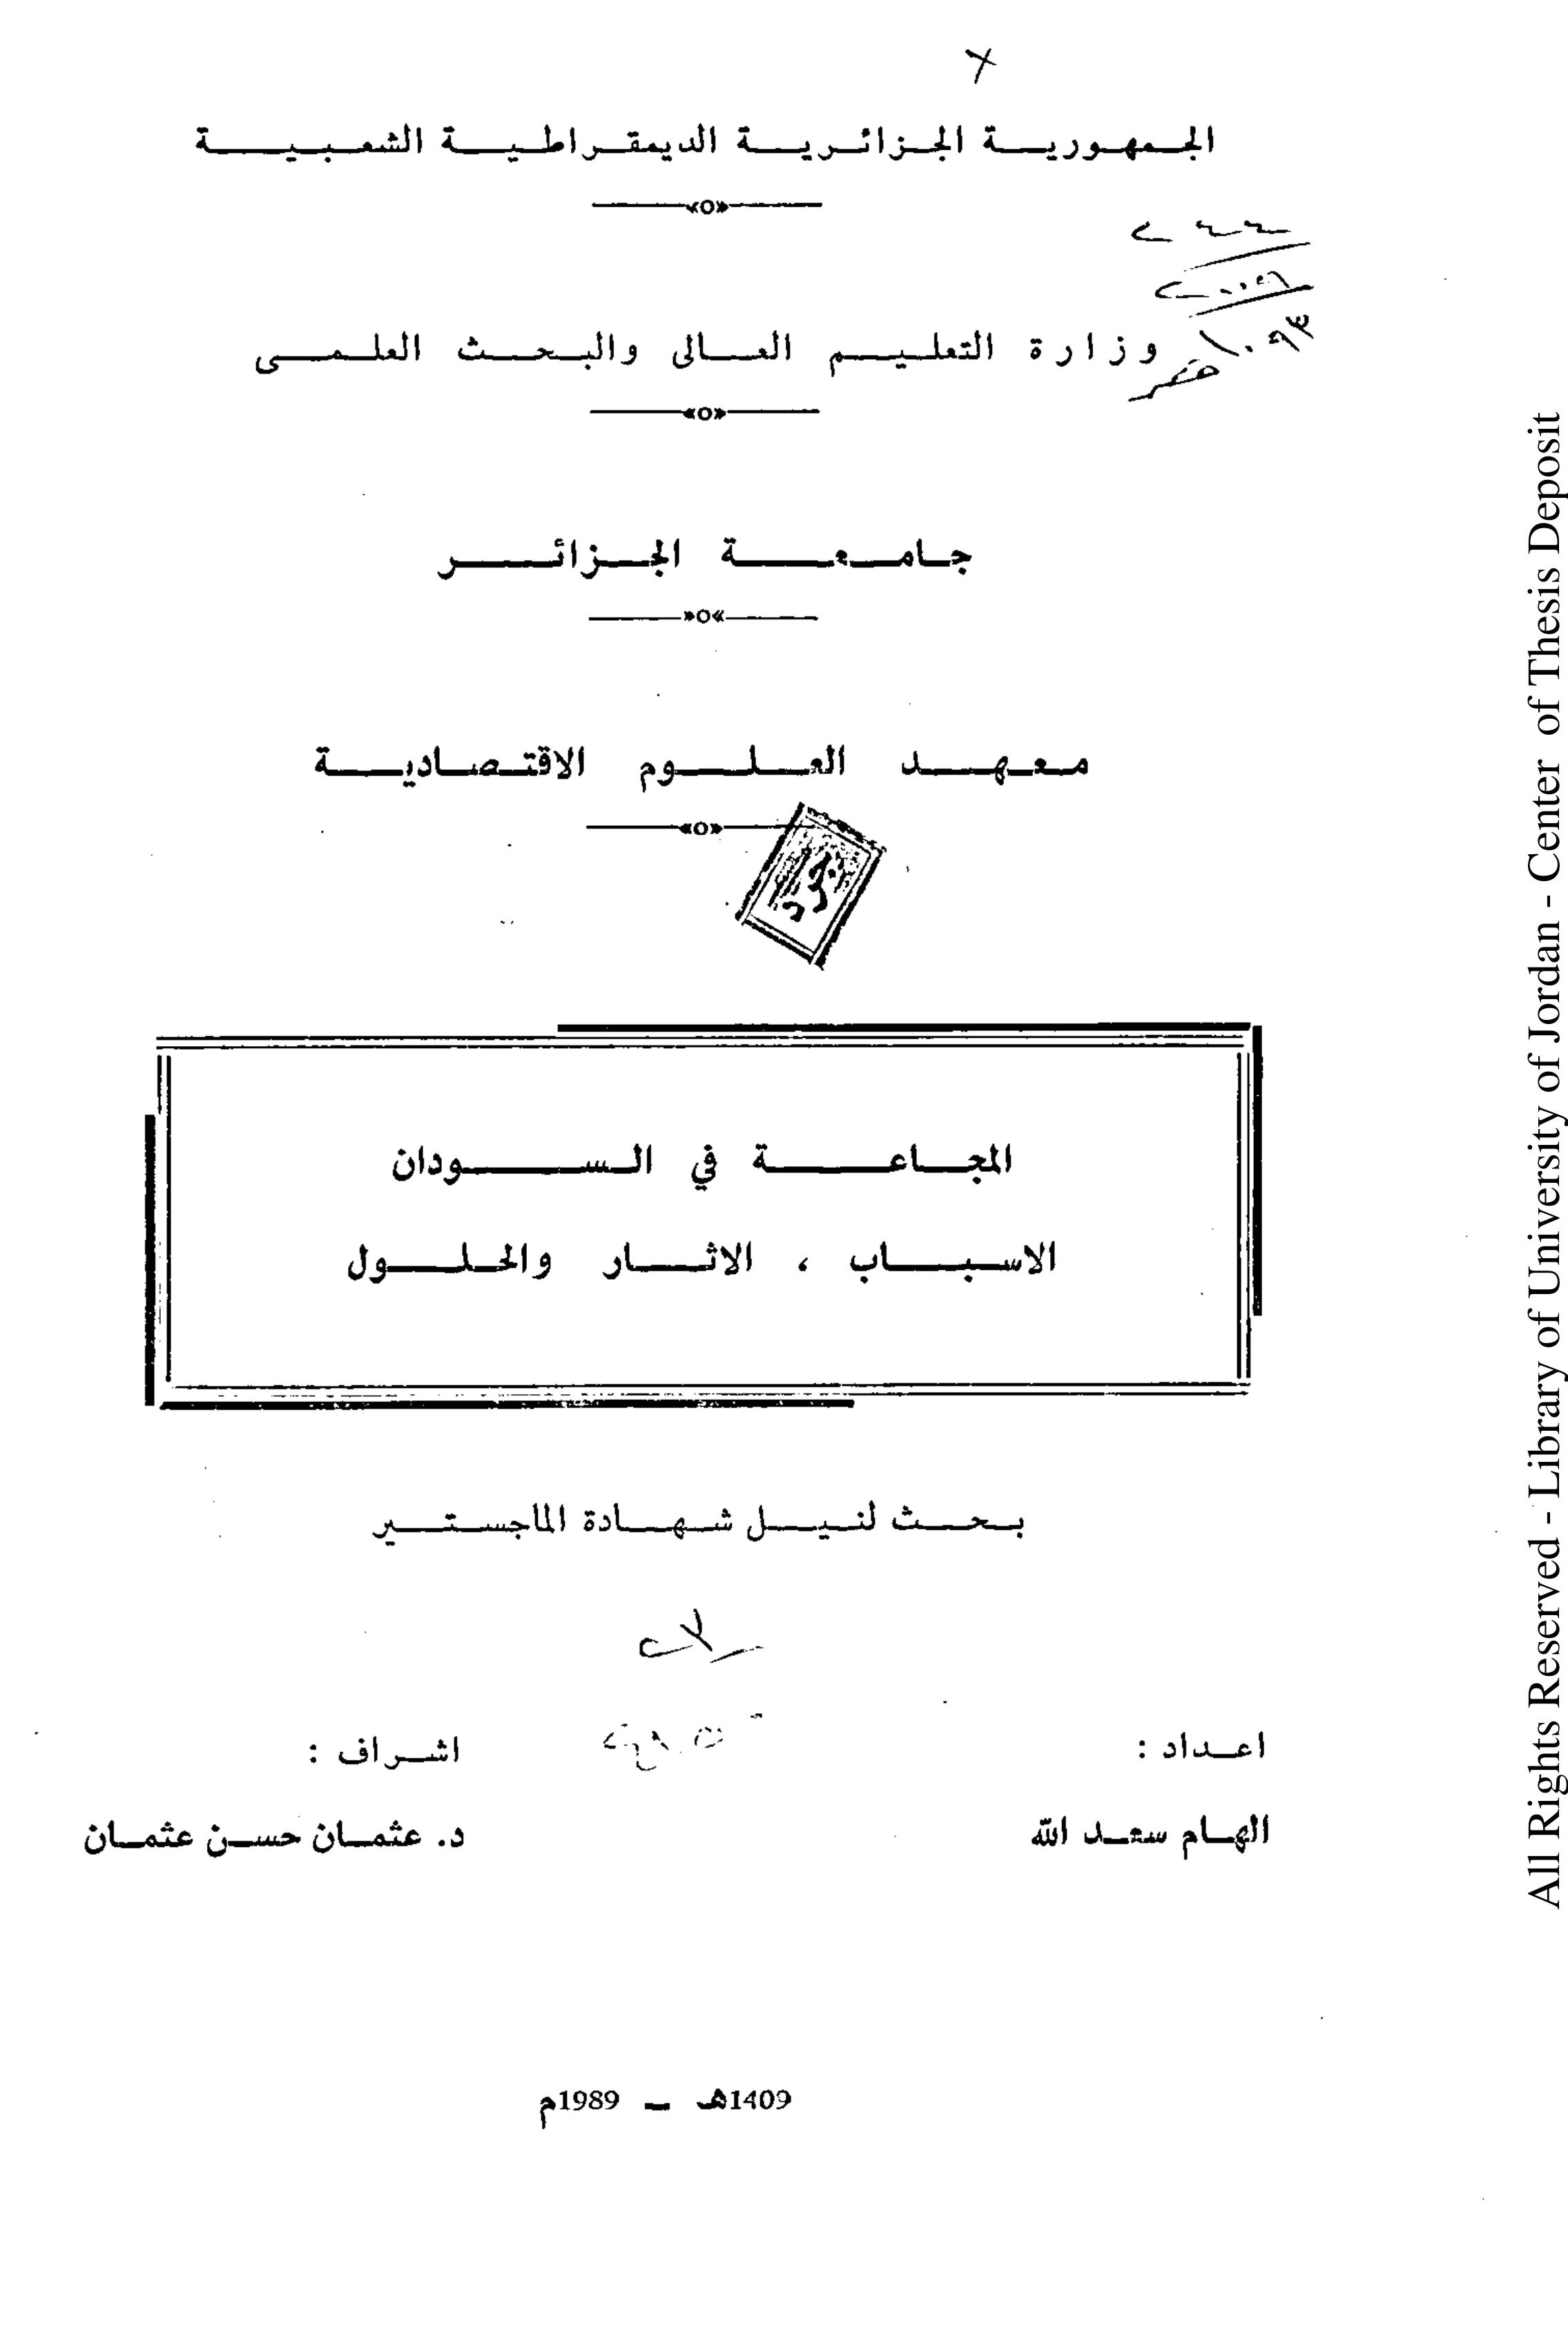 الجمهورية الجزائرية الديمقراطية الشعبية
وزارة التعليم العالى والبحث العلمى
جامعة الجزائر
معهد العلوم الاقتصادية
جرد
المجاعة في السودان
الاسباب ، الاثار والحلول
بحث لنيل شهادة الماجستير
اعداد :
اشراف :
الهام سعد الله
د. عثمان حسن عثمان
1409هـ – 1989م
All Rights Reserved - Library of University of Jordan - Center of Thesis Deposit